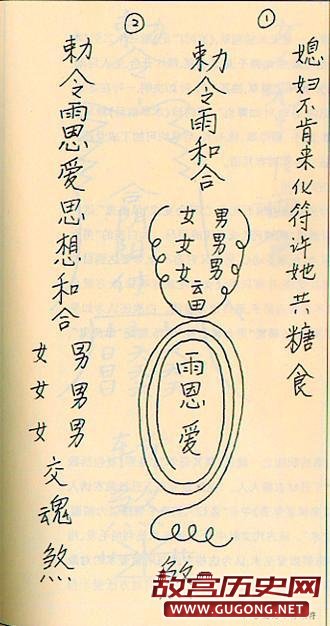 ①
媳妇不肯来化符许她共糖食
勅令雨和合
男男男
女女女
云田
雨恩爱
煞
②
勅令雨恩爱思想和合
男男男
女女女
交魂煞
故宫历史网
WWW.GUGONG.NET